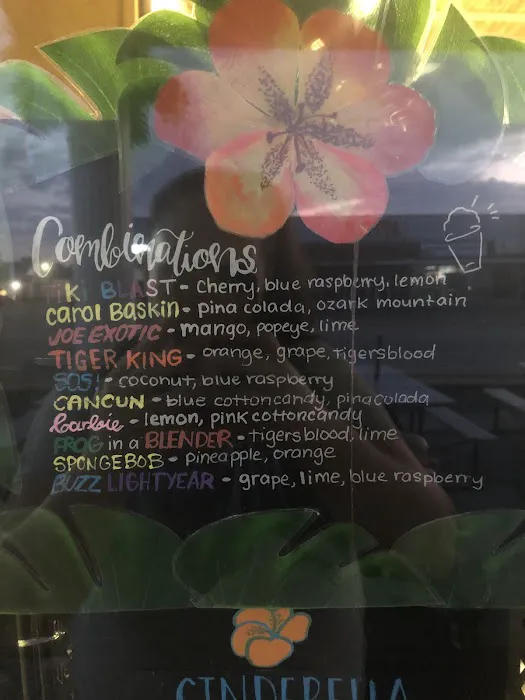 Combinations
TiK BLAST - Cherry, blue raspberry, lemon
Carol Baskin - pina colada, ozark mountain
JOE EXOTIC - mango, popeye, lime
TIGER KING - orange, grape, tigersblood
SOS! - coconut, blue raspberry
CANCUN - blue cottoncandy, pinacolada
barbie - lemon, pink cottoncandy
FROG in a BLENDER - tigersblood, lime
SPONGEBOB - pineapple, orange
BUZZ LIGHTYEAR - grape, lime, blue raspberry
CINDERELLA